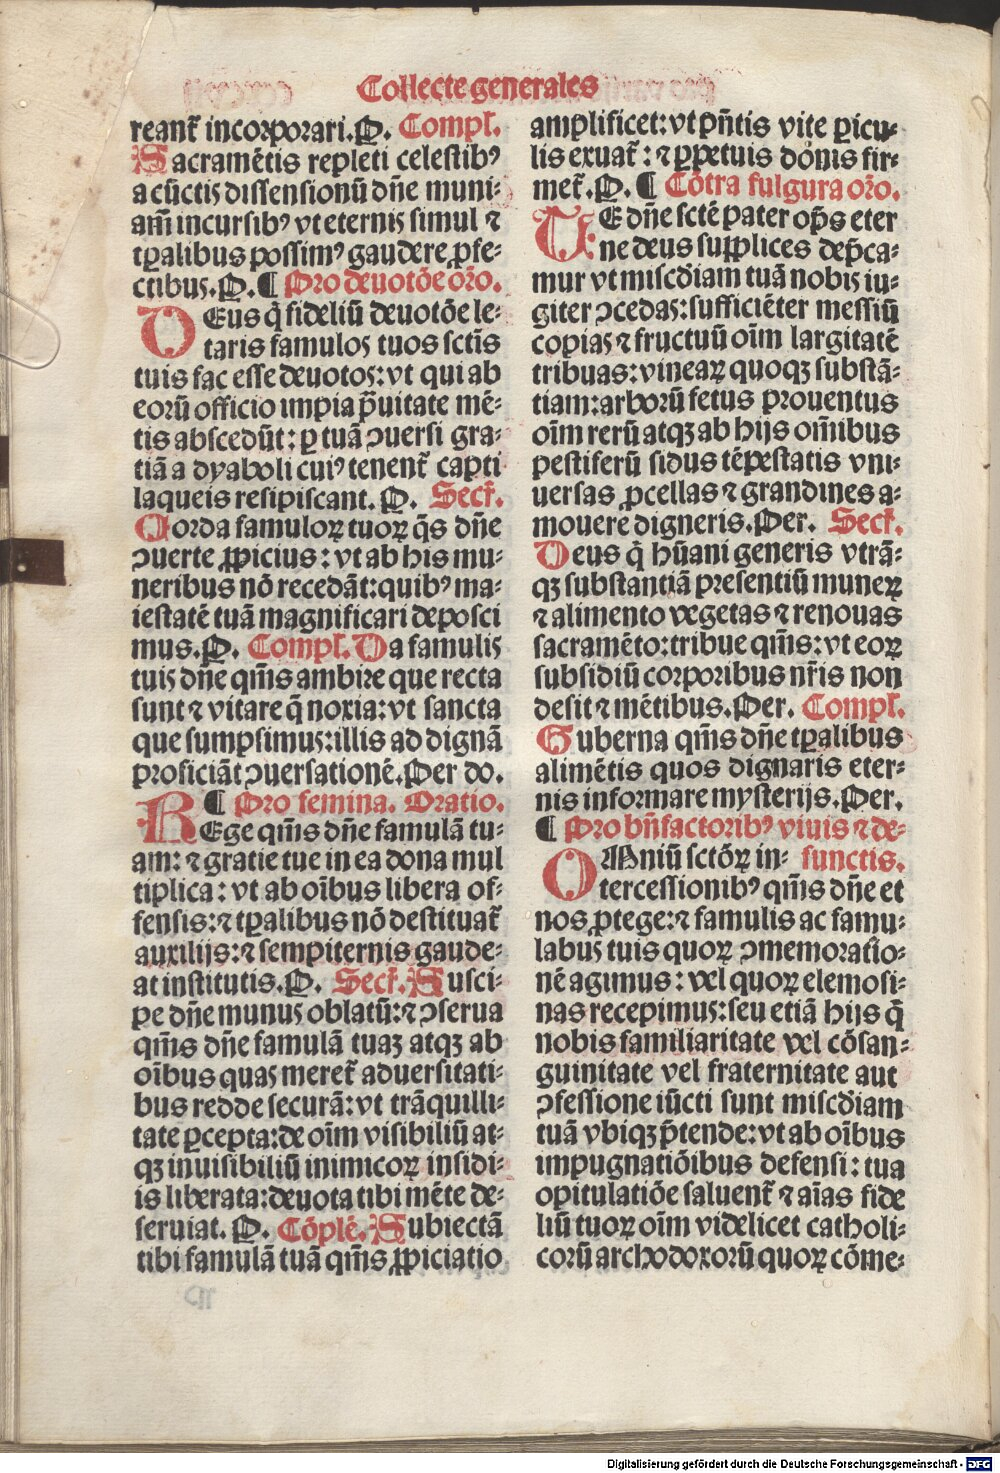 Collecte generales
reant᷑ incorporari.P. Compl.
Sacramētis repleti celestibꝰ
a cūctis dissensionū dn̄e muni-
am̄ incursibꝰ vt eternis simul ⁊
tꝑalibus possimꝰ gaudere ꝓfe-
ctibus.P. ¶ Pro deuotōe or̄o.
DEus q̄ fideliū deuotōe le-
taris famulos tuos sctīs
tuis fac esse deuotos:vt qui ab
eorū officio impia p̄uitate mē-
tis abscedūt: ꝑ tuā ꝯuersi gra-
tiā a dyaboli cuiꝰ tenent᷑ capti
laqueis resipiscant. P. Secr̄.
Corda famuloꝝ tuoꝝ q̄s dn̄e
ꝯuerte ꝓpicius: vt ab his mu-
neribus nō recedāt:quibꝰ ma-
iestatē tuā magnificari deposci
mus.P. Compl. Da famulis
tuis dn̄e qm̄s ambire que recta
sunt ⁊ vitare q̄ noxia:vt sancta
que sumpsimus:illis ad dignā
proficiāt ꝯuersationē.Per do.
¶ Pro femina. Oratio.
REge qm̄s dn̄e famulā tu-
am: ⁊ gratie tue in ea dona mul
tiplica: vt ab oībus libera of-
fensis:⁊ tꝑalibus nō destituat᷑
auxilijs:⁊ sempiternis gaude-
at institutis.P. Secr̄. Susci-
pe dn̄e munus oblatū:⁊ ꝯserua
qm̄s dn̄e famulā tuaꝫ atqꝫ ab
oībus quas meret᷑ aduersitati-
bus redde securā:vt trāquilli-
tate ꝑcepta:de oīm visibiliū at-
qꝫ inuisibiliū inimicoꝝ insidi-
is liberata:deuota tibi mēte de-
seruiat. P. Cōplē. Subiectā
tibi famulā tuā qm̄s ꝓpiciatio
amplificet:vt pn̄tis vite ꝑicu-
lis exuat᷑: ⁊ ꝑpetuis donis fir-
met᷑.P. ¶ Cōtra fulgura or̄o.
TE dn̄e sctē pater op̄s eter
ne deus supplices dep̄ca-
mur vt misc̄diam tuā nobis iu-
giter ꝯcedas:sufficiēter messiū
copias ⁊ fructuū oīm largitatē
tribuas:vineaꝝ quoqꝫ substā-
tiam:arborū fetus prouentus
oīm rerū atqꝫ ab hijs om̄ibus
pestiferū sidus tēpestatis vni-
uersas ꝓcellas ⁊ grandines a-
mouere digneris.Per. Secr̄.
Deus q̄ hūani generis vtrā-
qꝫ substantiā presentiū muneꝝ
⁊ alimento vegetas ⁊ renouas
sacramēto:tribue qm̄s:vt eoꝝ
subsidiū corporibus nr̄is non
desit ⁊ mētibus.Per. Compl.
Guberna qm̄s dn̄e tꝑalibus
alimētis quos dignaris eter-
nis informare mysterijs.Per.
¶ Pro bn̄factoribꝰ viuis ⁊ de-
OMniū sctōꝝ in- functis.
tercessionibꝰ qm̄s dn̄e et
nos ꝓtege:⁊ famulis ac famu-
labus tuis quoꝝ ꝯmemoratio-
nē agimus: vel quoꝝ elemosi-
nas recepimus:seu etiā hijs q̄
nobis familiaritate vel cōsan-
guinitate vel fraternitate aut
ꝯfessione iūcti sunt misc̄diam
tuā vbiqꝫ p̄tende:vt ab oībus
impugnatiōibus defensi: tua
opitulatiōe saluent᷑ ⁊ aīas fide
liū tuoꝝ oīm videlicet catholi-
corū archodoxorū quoꝝ cōme-
Digitalisierung gefördert durch die Deutsche Forschungsgemeinschaft - DFG